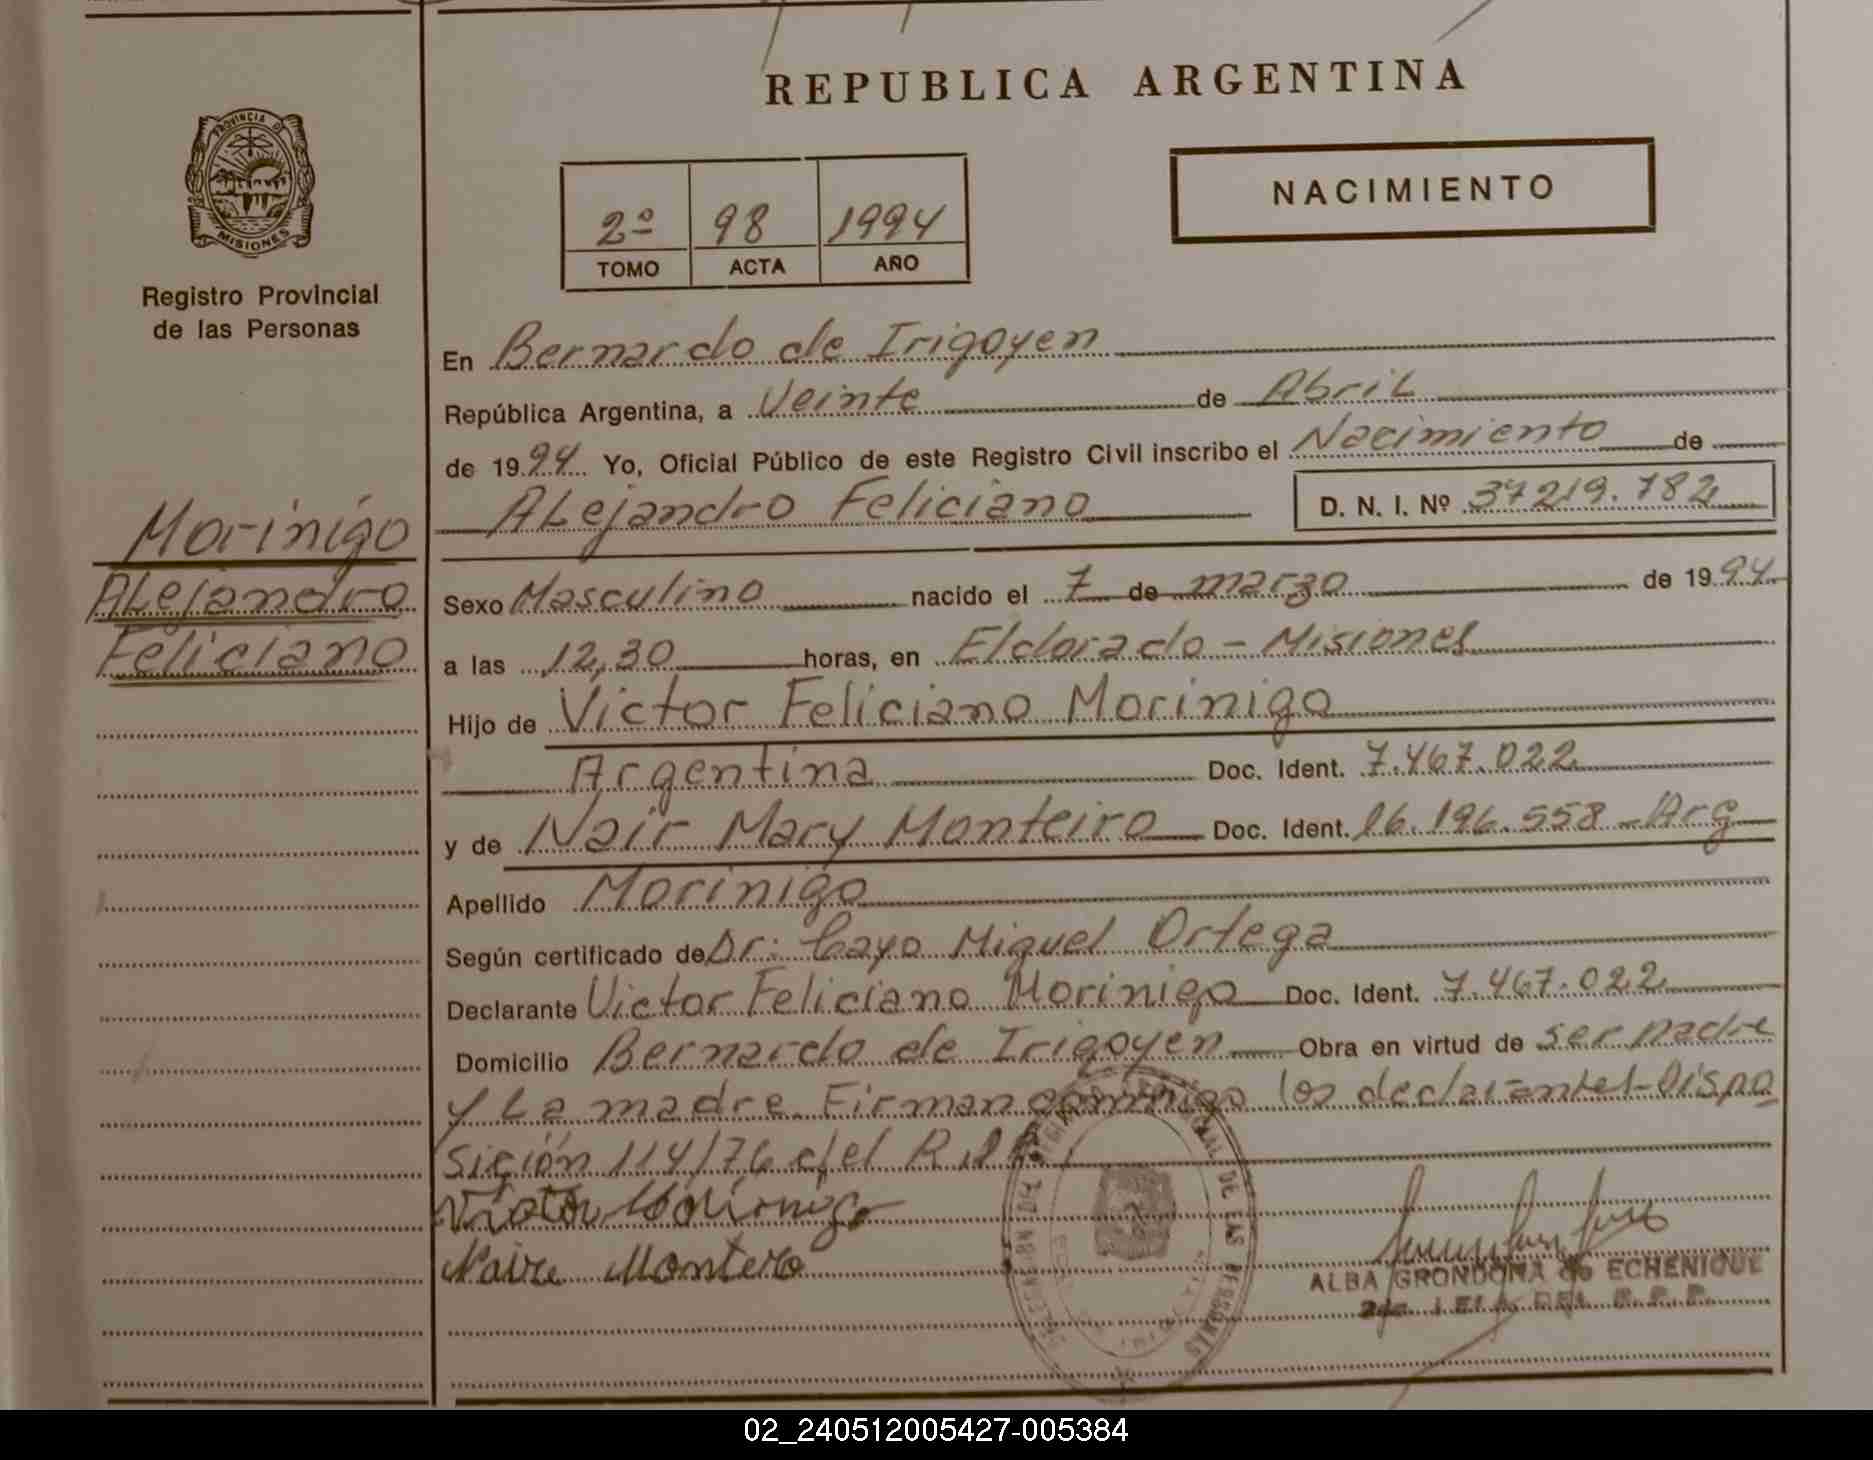 REPUBLICA ARGENTINA
PROVINCIA DE
MISIONES
Registro Provincial
de las Personas
2º 98 1994
TOMO ACTA AÑO
NACIMIENTO
En Bernardo de Irigoyen
República Argentina, a Veinte de Abril
de 1994 Yo, Oficial Público de este Registro Civil inscribo el Nacimiento de
Alejandro Feliciano D. N. I. Nº 37219.782
Morinigo
Alejandro
Feliciano
Sexo Masculino nacido el 7 de marzo de 1994
a las 12,30 horas, en Eldorado - Misiones
Hijo de Victor Feliciano Morinigo
Argentina Doc. Ident. 7.467.022
y de Nair Mary Monteiro Doc. Ident. 16.196.558 - Arg
Apellido Morinigo
Según certificado de Dr: Cayo Miguel Ortega
Declarante Victor Feliciano Morinigo Doc. Ident. 7.467.022
Domicilio Bernardo de Irigoyen Obra en virtud de ser padre
y La madre Firman conmigo los declarantes-Dispo
sición 114/76 d/el R.P.P.
Victor Morinigo
Naire Montero
DE LAS PERSONAS
ALBA GRONDONA de ECHENIQUE
DEL R.P.P.
02_240512005427-005384